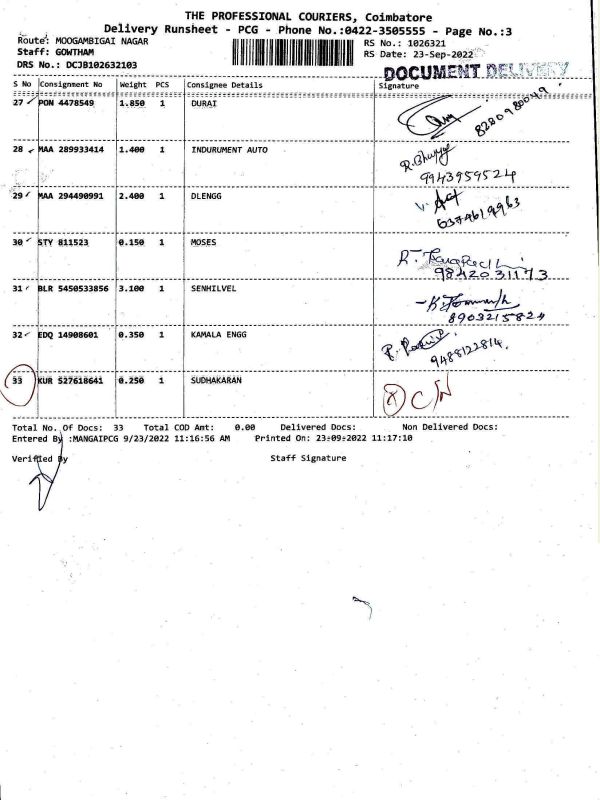 THE PROFESSIONAL COURIERS, Coimbatore
Delivery Runsheet - PCG - Phone No.:0422-3505555 - Page No.:3
Route: MOOGAMBIGAI NAGAR
RS No.: 1026321
Staff: GOWTHAM
RS Date: 23-Sep-2022
DRS No.: DCJB102632103
DOCUMENT DELIVERY
S No Consignment No Weight PCS Consignee Details Signature
27 PON 4478549 1.850 1 DURAI 8280980049
28 MAA 289933414 1.400 1 INDURUMENT AUTO
9943959524
29 MAA 294490991 2.400 1 DLENGG
6379619963
30 STY 811523 0.150 1 MOSES
9842031173
31 BLR 5450533856 3.100 1 SENHILVEL
8903215824
32 EDQ 14908601 0.350 1 KAMALA ENGG
9488122814.
33 KUR 527618641 0.250 1 SUDHAKARAN
X C/N
Total No. Of Docs: 33 Total COD Amt: 0.00 Delivered Docs: Non Delivered Docs:
Entered By :MANGAIPCG 9/23/2022 11:16:56 AM Printed On: 23-09-2022 11:17:10
Verified By Staff Signature